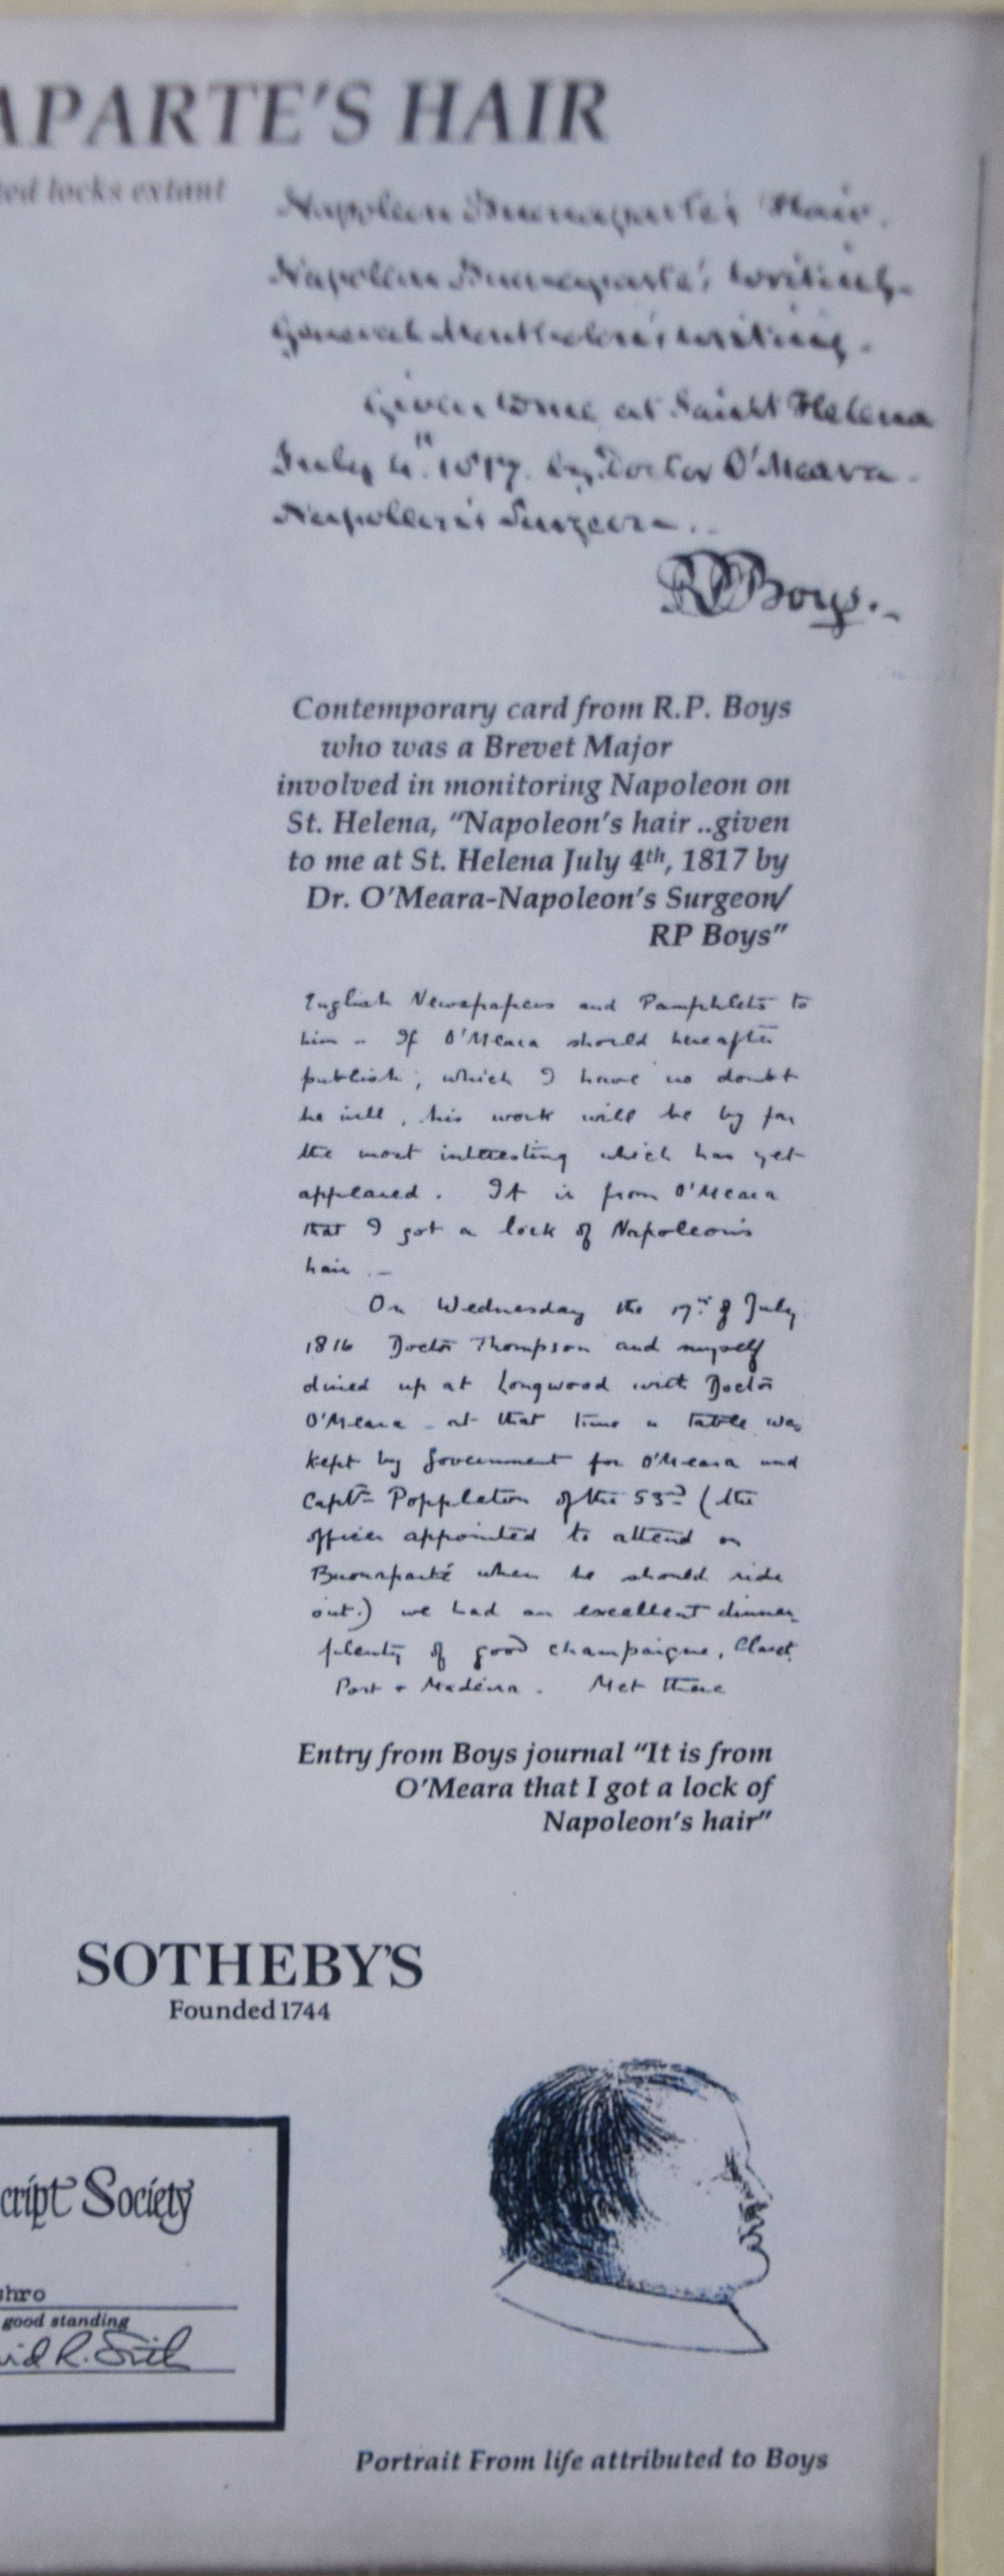 APARTE'S HAIR
ted locks extant
Napoleon Buonaparte's Hair.
Napoleon Buonaparte's writing-
General Montholon's writing.
Given to me at Saint Helena
July 4th. 1817. by Doctor O'Meara-
Napoleon's Surgeon..
RPBoys.
Contemporary card from R.P. Boys
who was a Brevet Major
involved in monitoring Napoleon on
St. Helena, “Napoleon's hair ..given
to me at St. Helena July 4th, 1817 by
Dr. O'Meara-Napoleon's Surgeon/
RP Boys”
English Newspapers and Pamphlets to
him - If O'Meara should hereafter
publish, which I have no doubt
he will, his work will be by far
the most interesting which has yet
appeared. It is from O'Meara
that I got a lock of Napoleon's
hair.-
On Wednesday the 17th of July
1816 Doctor Thompson and myself
dined up at Longwood with Doctor
O'Meara - at that time a table was
kept by Government for O'Meara and
Captn Poppleton of the 53rd (the
officer appointed to attend on
Buonaparté when he should ride
out.) we had an excellent dinner
plenty of good champaigne, Claret,
Port + Madeira. Met there
Entry from Boys journal “It is from
O'Meara that I got a lock of
Napoleon's hair”
SOTHEBY'S
Founded 1744
cript Society
shro
good standing
id R. Smith
Portrait From life attributed to Boys